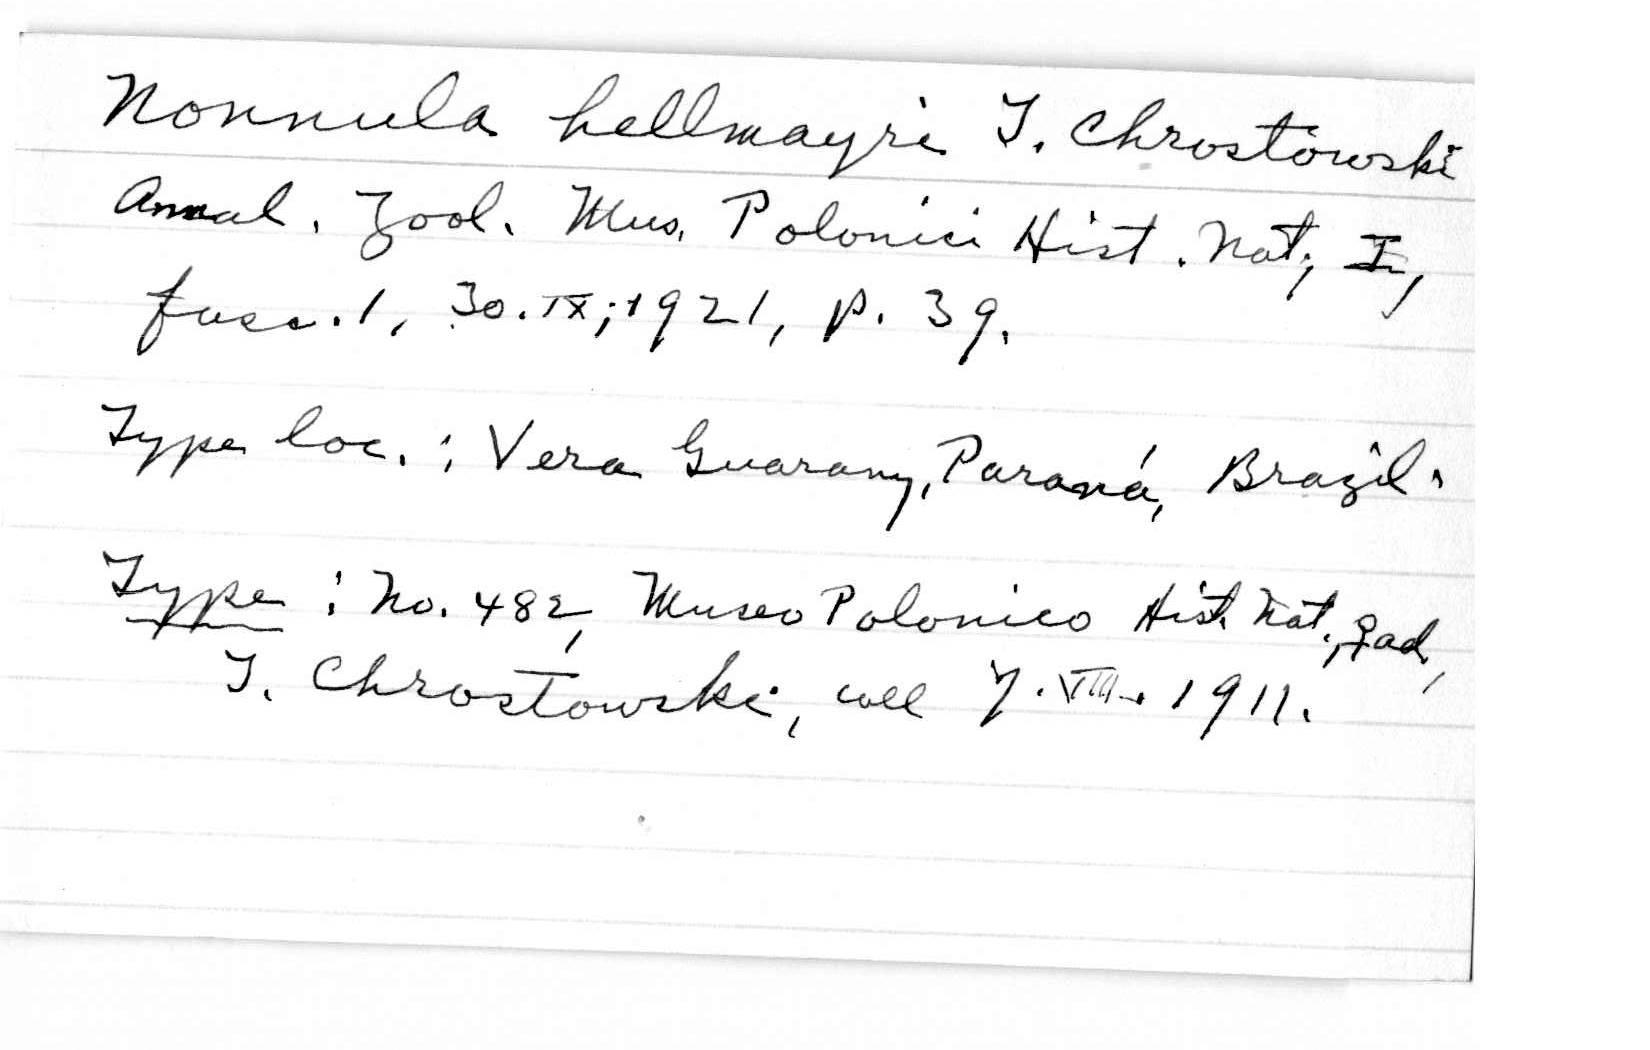 Nonnula hellmayri T. Chrostowski
Annal. Zool. Mus. Polonici Hist. Nat., I,
fasc. 1, 30.IX;1921, p. 39.
Type loc.: Vera Guarany, Paraná, Brazil.
Type: No. 482, Museo Polonico Hist. Nat., ♀ad,
T. Chrostowski, coll 7.VIII.1911.